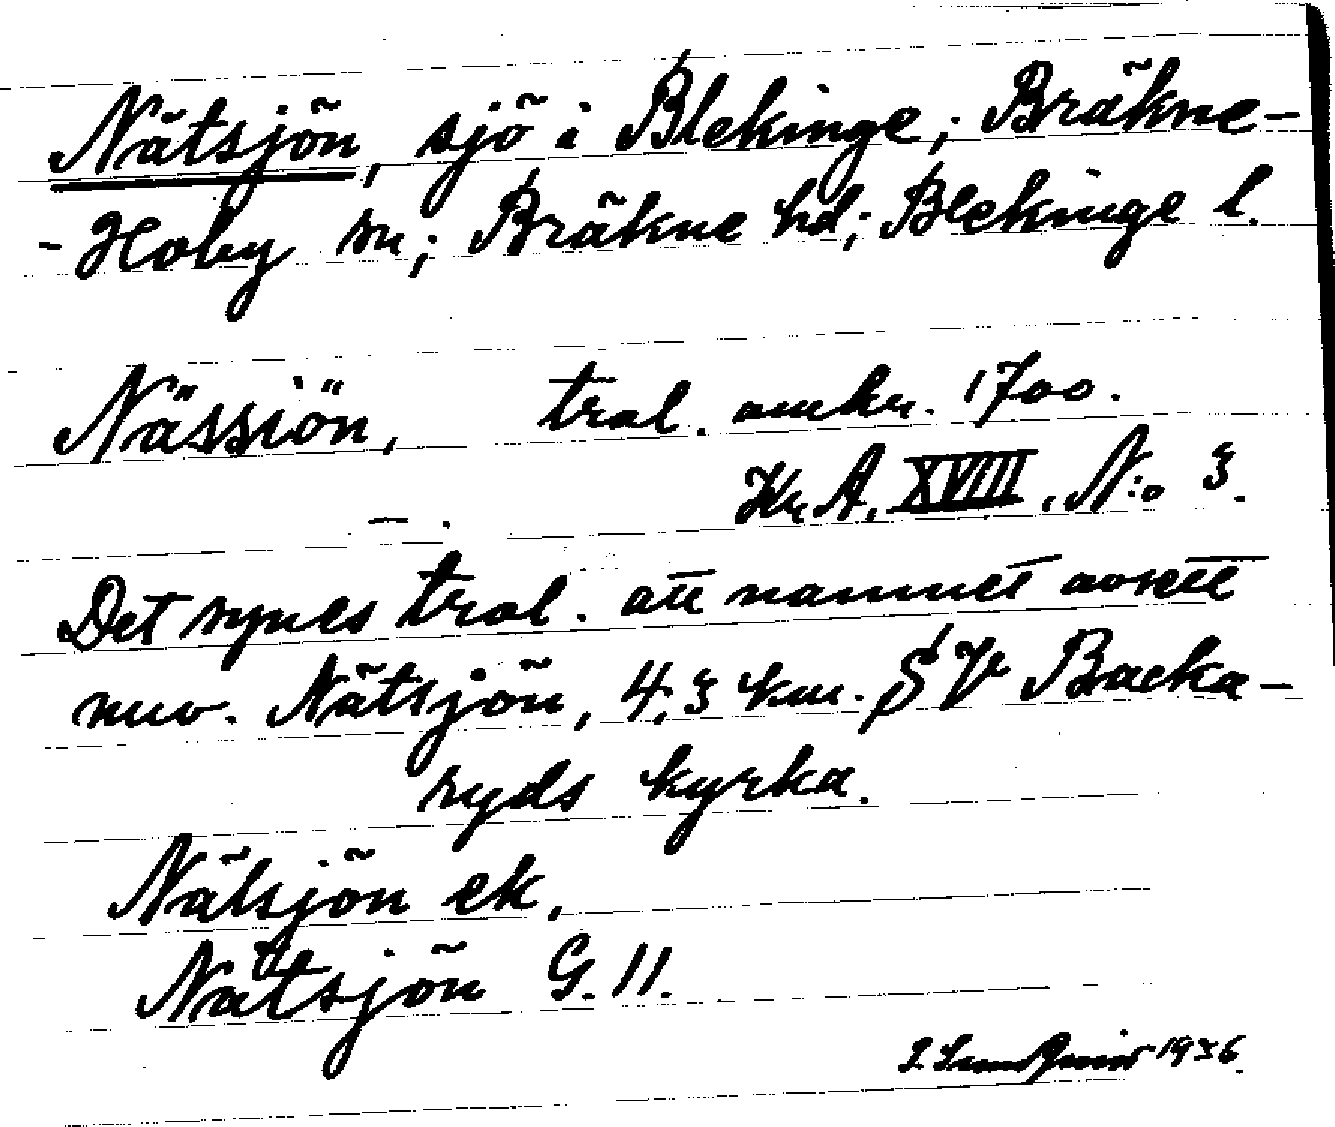 Nätsjön, sjö i Blekinge; Bräkne-
-Hoby sn; Bräkne hd; Blekinge l.
Nässiön, trol. omkr. 1700.
Kr. A. XVIII. N:o 3.
- .
Det synes trol. att namnet avsett
nuv. Nätsjön, 4,3 km. SV Backa-
ryds kyrka.
Nätsjön ek.
Nätsjön G. 11.
1936